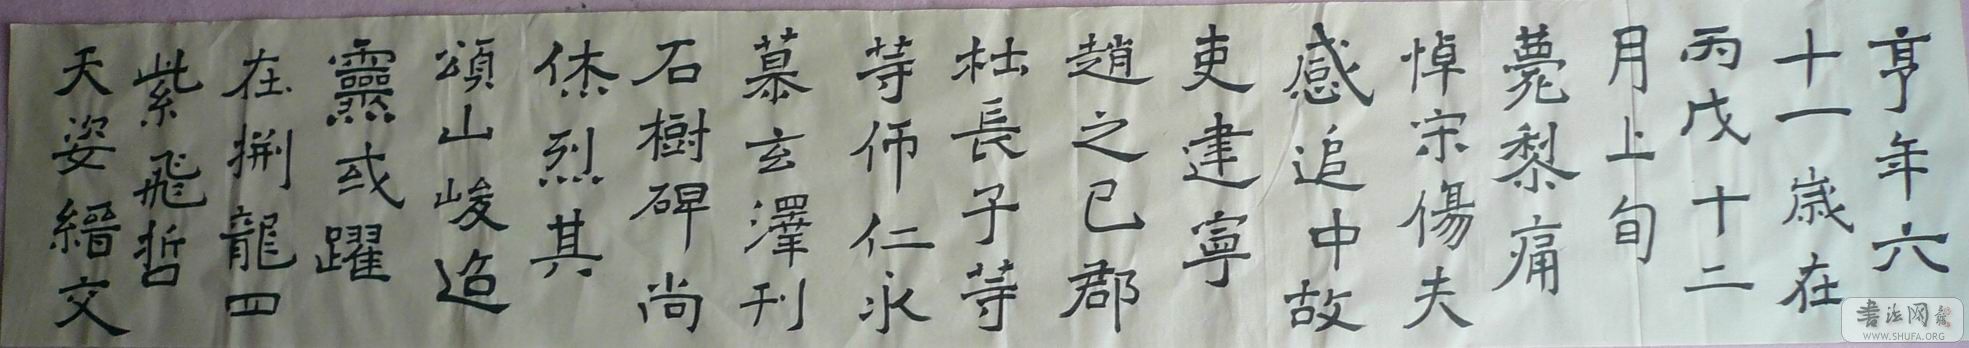 亨年六
十一歲在
丙戌十二
月上旬
薨黎痛
悼宗傷夫
感追中故
吏建寧
趙之巳郡
杜長子等
等師仁永
慕玄澤刊
石樹碑尚
休烈其
頌山峻造
靈或躍
在捌龍四
紫飛哲
天姿縉文
書法网
WWW.SHUFA.ORG